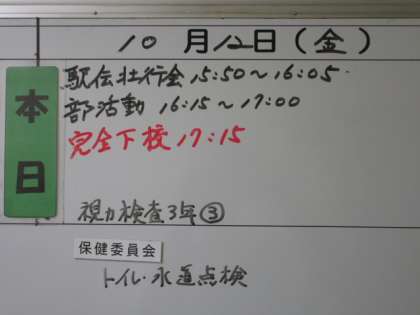 10月12日(金)
本日
駅伝壮行会 15:50〜16:05
部活動 16:15〜17:00
完全下校 17:15
視力検査3年③
保健委員会
トイレ・水道点検